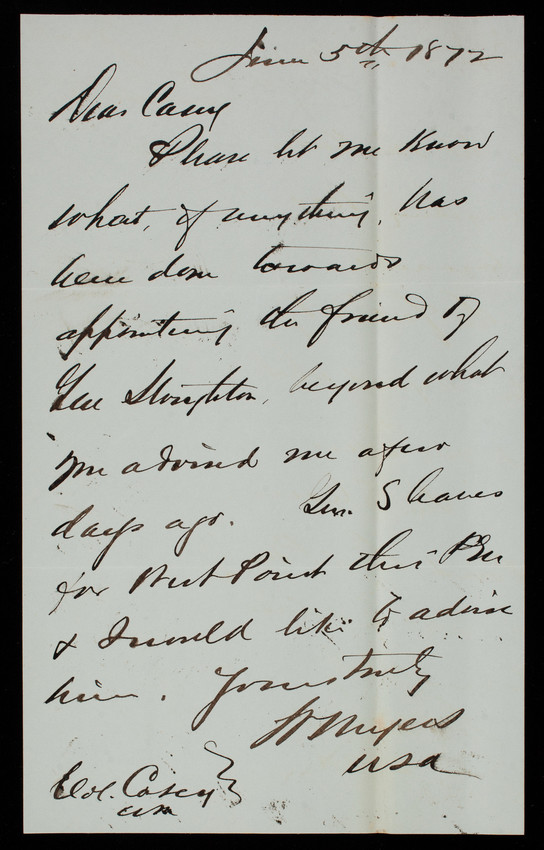 June 5th 1872
Dear Casey
Please let me know
what, if anything, has
been done towards
appointing the friend of
Gen Stoughton, beyond what
you advised me a few
days ago. Gen. S leaves
for West Point this PM
& I would like to advise
him. Yours truly
W Myers
USA
Col. Casey
USA